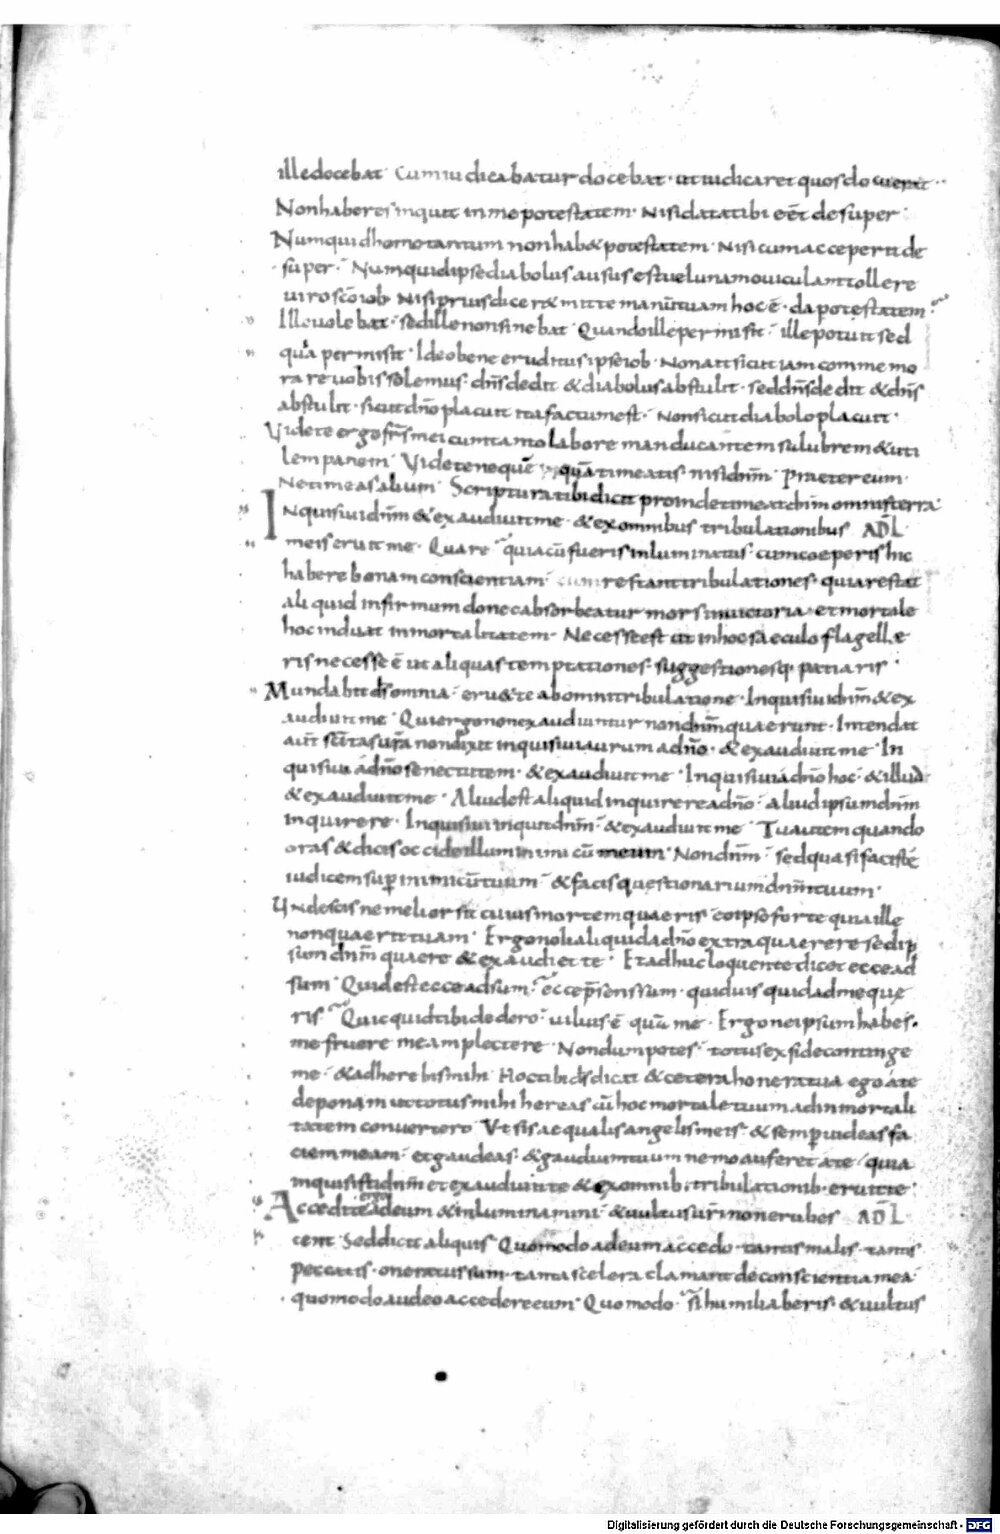 ille docebat · Cum iudicabatur docebat · ut iudicaret quos docuerat ·
Non haberes inquit in me potestatem · Nisi data tibi eēt desuper ·
Numquid homo tantum non hab& potestatem · Nisi cum acceperit de
super · Numquid ipse diabolus ausus est uel unam ouiculam tollere
uiro sc̄o iob · Nisi prius dicer& mitte manū tuam hoc ē · da potestatem ·
Ille uolebat · sed ille non sinebat · Quando ille permisit · ille potuit sed
quia permisit · Ideo bene eruditus ipse iob · Non att sicut iam commemo
rare uobis solemus · dn̄s dedit & diabolus abstulit · sed dn̄s dedit & dn̄s
abstulit · sicut dn̄o placuit ita factum est · Non sicut diabolo placuit ·
Videte ergo fr̄s mei cum tanto labore manducantem salubrem & uti
lem panem · Videte neque timeatis nisi dn̄m · Praeter eum
Ne timeas alium · Scriptura tibi dicit proinde timeat dn̄m omnis terra
Inquisiui dn̄m & exaudiuit me · & ex omnibus tribulationibus AD L̄
meis eruit me · Quare · quia cū fueris inluminatus · cum coeperis hic
habere bonam conscientiam · cum restant tribulationes · quia restat
aliquid infirmum donec absorbeatur mors in uictoria · et mortale
hoc induat inmortalitatem · Necesse est ut in hoc saeculo flagelle
ris necesse ē ut aliquas temptationes · suggestionesq· patiaris ·
Mundabit ds̄ omnia · eru& te ab omni tribulatione · Inquisiui dn̄m & ex
audiuit me · Qui ergo non exaudiuntur non dn̄m quaerunt · Intendat
aut̄ sc̄itas ur̄a non dixit inquisiui aurum a dn̄o · & exaudiuit me · In
quisiui a dn̄o senectutem · & exaudiuit me · Inquisiui a dn̄o hoc · & illud
& exaudiuit me · Aliud est aliquid inquirere a dn̄o · aliud ipsum dn̄m
inquirere · Inquisiui inquit dn̄m · & exaudiuit me · Tu autem quando
oras & dicis occide illum inimicū meum · Non dn̄m · sed quasi facis te
iudicem sup̄ inimicū tuum · & facis questionarium dn̄m tuum ·
Unde scis ne melior sit cuius mortem quaeris · eo ipso forte quia ille
non quaerit tuam · Ergo noli aliquid a dn̄o extra quaerere sed ip
sum dn̄m quaere & exaudiet te · Et adhuc loquente dicet ecce ad
sum · Quid est ecce adsum · ecce p̄sens sum · quid uis quid a d me que
ris · Quicquid tibi dedero · uilius ē quā me · Ergo me ipsum habes ·
me fruere me amplectere · Nondum potes · totus ex fide continge
me · & adherebis mihi · Hoc tibi ds̄ dicit & cetera honera tua ego a te
deponam ut totus mihi hereas cū hoc mortale tuum ad inmortali
tatem conuertero · Ut sis aequalis angelis meis · & semp̄ uideas fa
ciem meam · et gaudeas · & gaudium tuum nemo auferet a te · quia
inquisisti dn̄m et exaudiuit te & ex omnib· tribulationib· eruit te ·
Accedite ergo ad eum & inluminamini · & uultus ur̄i non erubes AD L̄
cent · Sed dicit aliquis · Quomodo ad eum accedo · tantis malis · tantis
peccatis · oneratus sum · tanta scelera clamant de conscientia mea ·
quomodo audeo accedere eum · Quomodo · si humiliaberis · & uultus
Digitalisierung gefördert durch die Deutsche Forschungsgemeinschaft - DFG